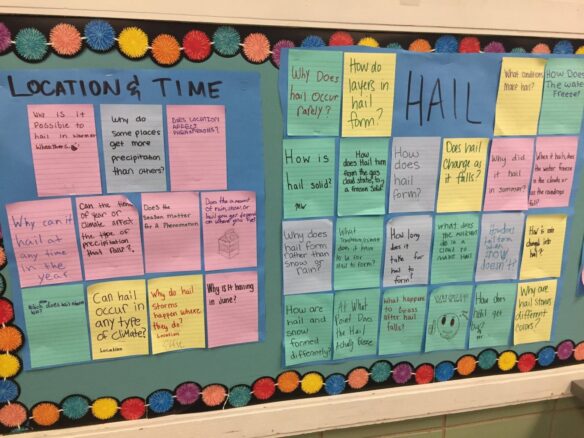 LOCATION & TIME
Why is it
Possible to
hail in warmer
Why do
some places
get more
precipitation
than others?
Does Location
affect
Why can it
hail at
any time
in the
year
Can the time
of year or
climate affect
the type of
precipitation
that falls?
Does the
Season Matter
for A Phenomenon?
Does the amount
of rain, snow, or
hail you get depend
on where you live?
Can hail
occur in
any type
of Climate?
Location
Why do hail
storms
happen where
they do?
Location
Why is it hailing
in June?
HAIL
Why Does
hail occur
Rarely?
How do
layers in
hail
form?
What conditions
make hail?
How Does
The water
Freeze?
How is
hail solid?
How does Hail turn
from the gas
cloud state, to
a frozen solid?
How does
hail form?
Does hail
Change as
it falls?
Why did
it hail
in summer?
When it hails, does
the water freeze
in the clouds or
as the raindrops
fall?
Why does
hail form
rather than
snow or
rain?
What
does it
have to be for
Hail to form?
How long
does it
take for
hail to form?
What does
the water
do in a
cloud to
make hail
How does
hail form
with
snow
How is rain
changed into
hail?
How are
hail and
snow
formed
differently?
At What
Point Does
the Hail
Actually Freeze
What happens
to Grass
after hail
falls?
How does
hail get
big?
Why are
hail storms
different
colors?